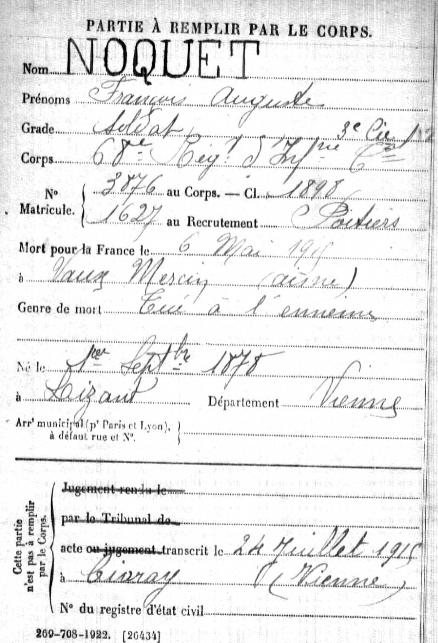 PARTIE À REMPLIR PAR LE CORPS.
Nom NOQUET
Prénoms François Auguste
Grade Soldat 3e Cie
Corps 68e Régt d'Infrie
N° Matricule. 3876 au Corps. — Cl. 1898
1627 au Recrutement Poitiers
Mort pour la France le 6 Mai 1915
à Vaux Mercin (aisne)
Genre de mort Tué à l'ennemi
Né le 1er Septbre 1878
à Lizant Département Vienne
Arrt municipal (pr Paris et Lyon), à défaut rue et N°.
Cette partie n'est pas à remplir par le Corps.
Jugement rendu le
par le Tribunal de
acte ou jugement transcrit le 24 Juillet 1915
à Civray (Vienne)
N° du registre d'état civil
269-708-1922. [26434]